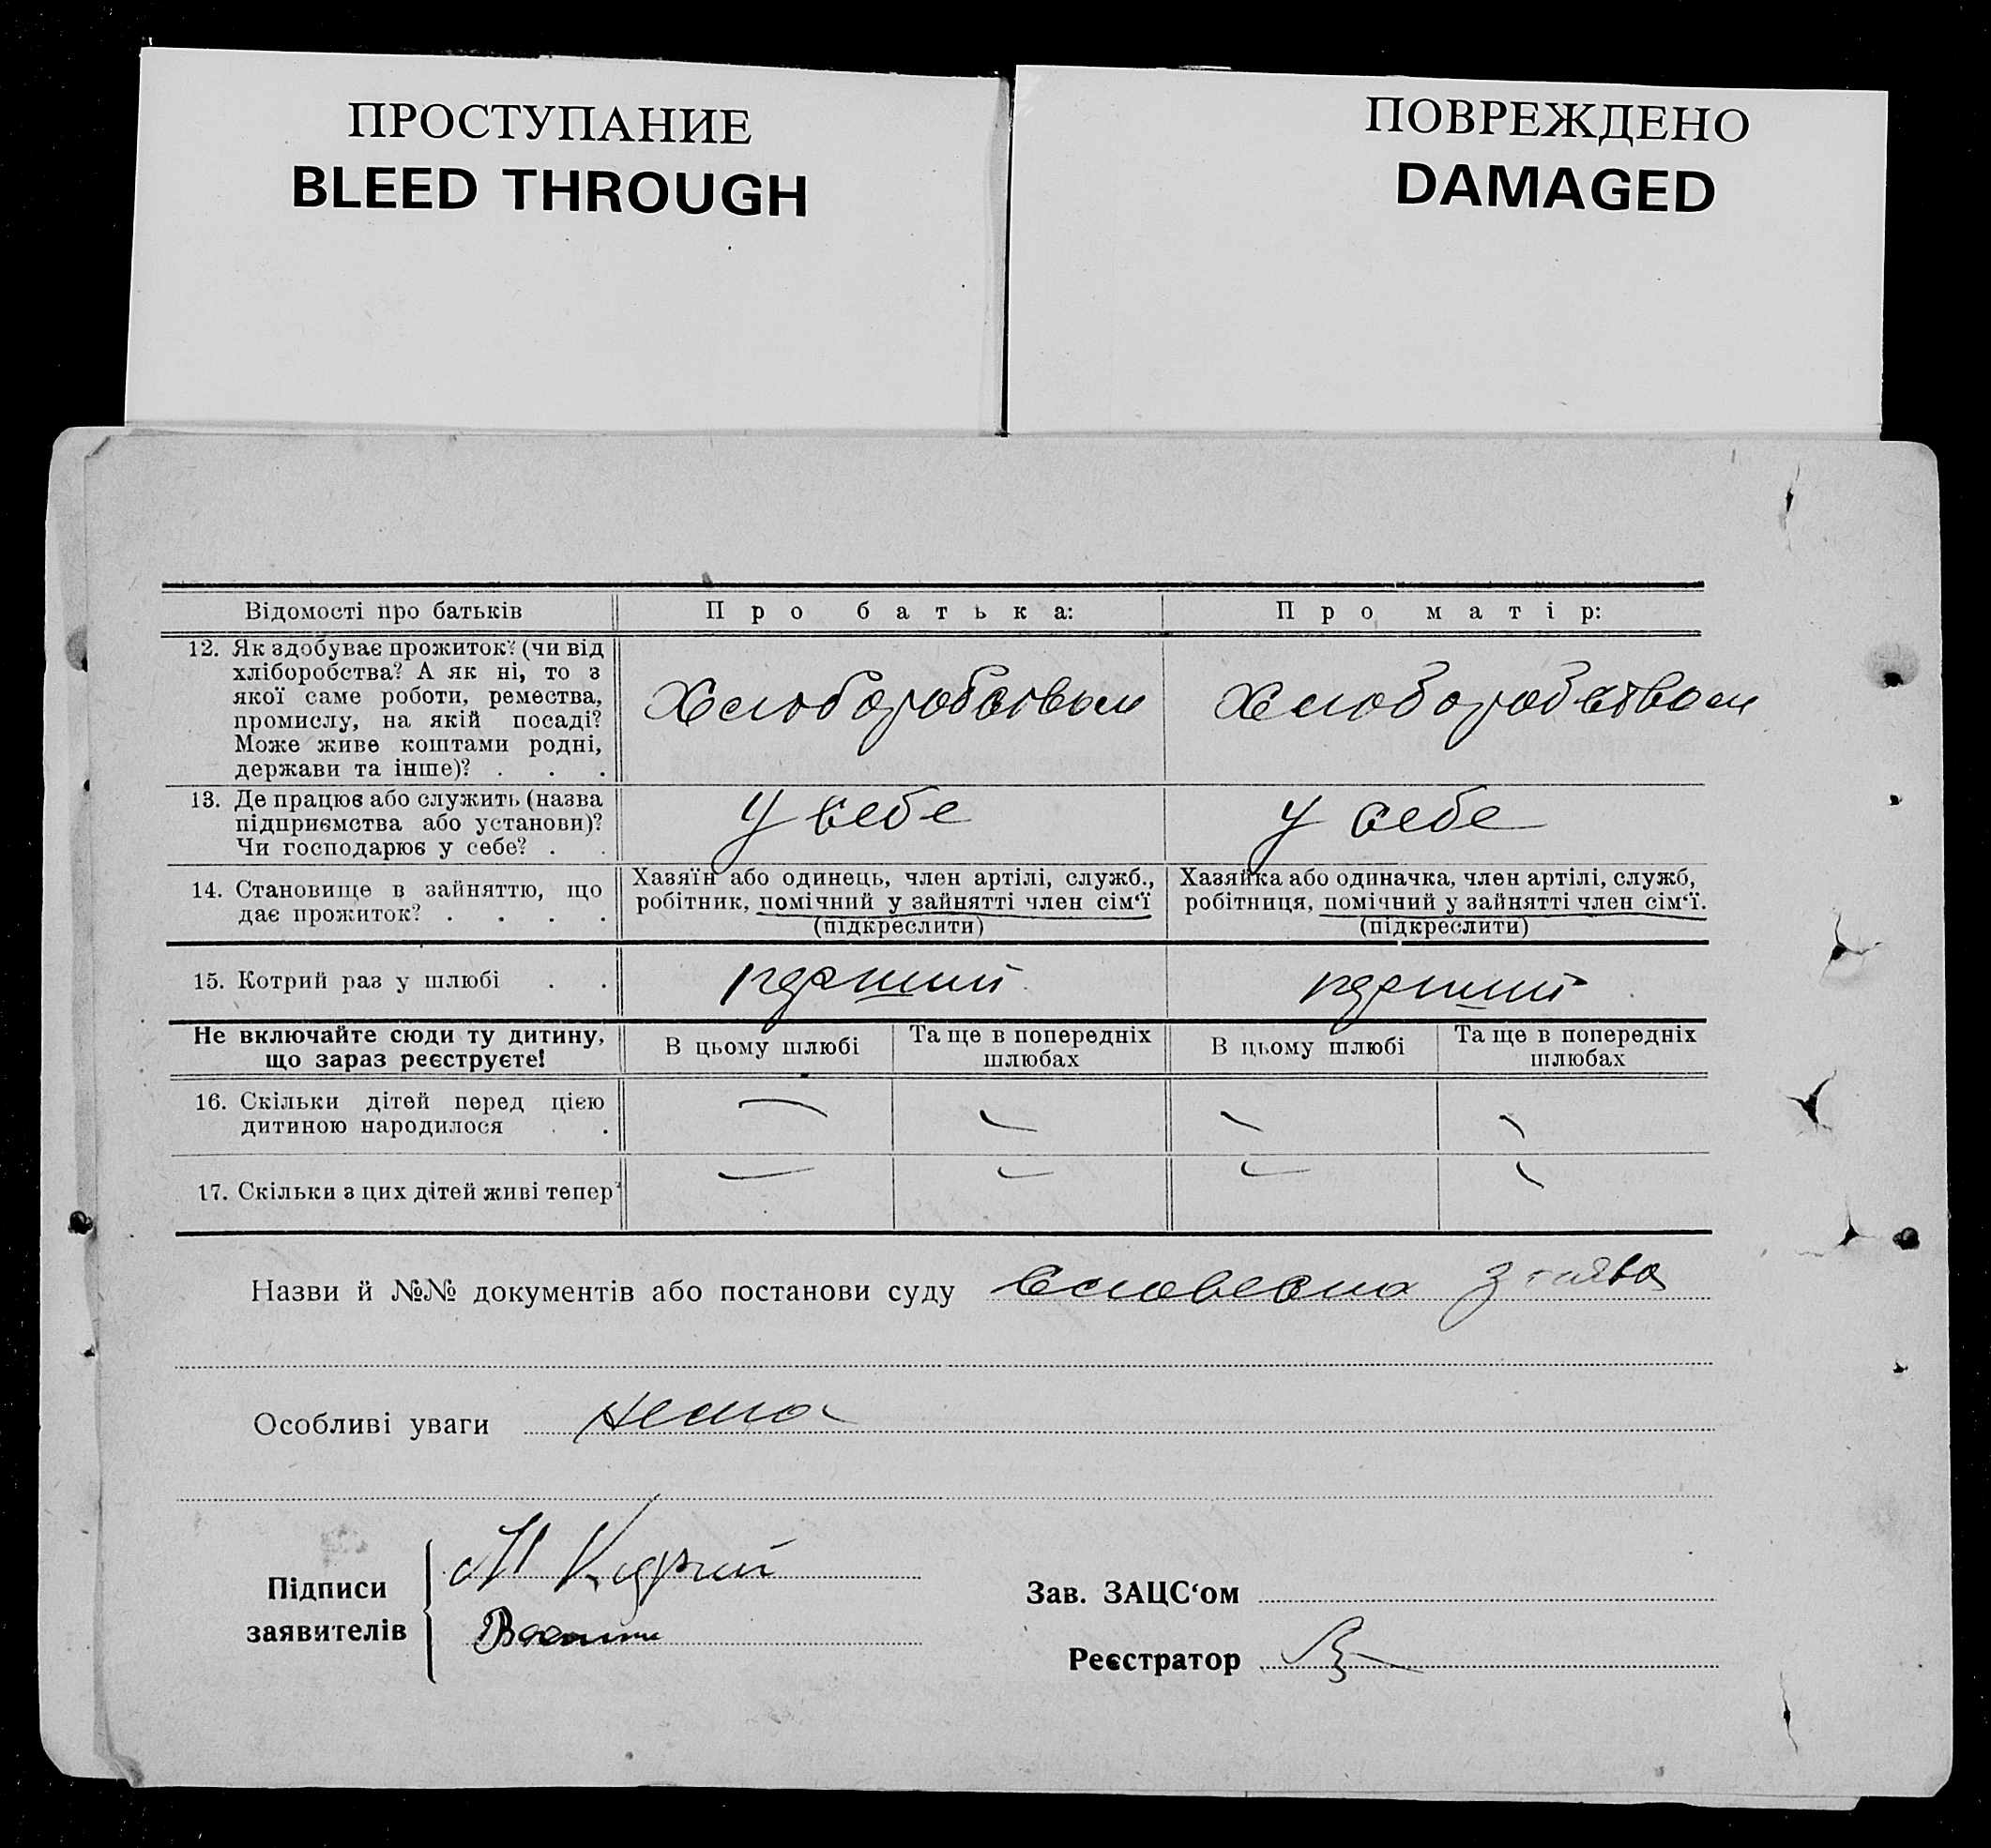 ПРОСТУПАНИЕ
BLEED THROUGH
ПОВРЕЖДЕНО
DAMAGED
Відомості про батьків
Про батька:
Про матір:
12. Як здобуває прожиток? (чи від
хліборобства? А як ні, то з
якої саме роботи, ремества,
промислу, на якій посаді?
Може живе коштами родні,
держави та інше)? . . .
Хлюборобством
Хлюборобством
13. Де працює або служить (назва
підприємства або установи)?
Чи господарює у себе? . .
У себе
У себе
14. Становище в зайняттю, що
дає прожиток? . . . .
Хазяїн або одинець, член артілі, служб.,
робітник, помічний у зайнятті член сім‘ї
(підкреслити)
Хазяйка або одиначка, член артілі, служб,
робітниця, помічний у зайнятті член сім‘ї.
(підкреслити)
15. Котрий раз у шлюбі . .
перший
перший
Не включайте сюди ту дитину,
що зараз реєструєте!
В цьому шлюбі
Та ще в попередніх
шлюбах
В цьому шлюбі
Та ще в попередніх
шлюбах
16. Скільки дітей перед цією
дитиною народилося . .
— — — —
17. Скільки з цих дітей живі тепер?
— — — —
Назви й №№ документів або постанови суду Словесна заява
Особливі уваги нема
Підписи
заявителів
М
Зав. ЗАЦС‘ом
Реєстратор